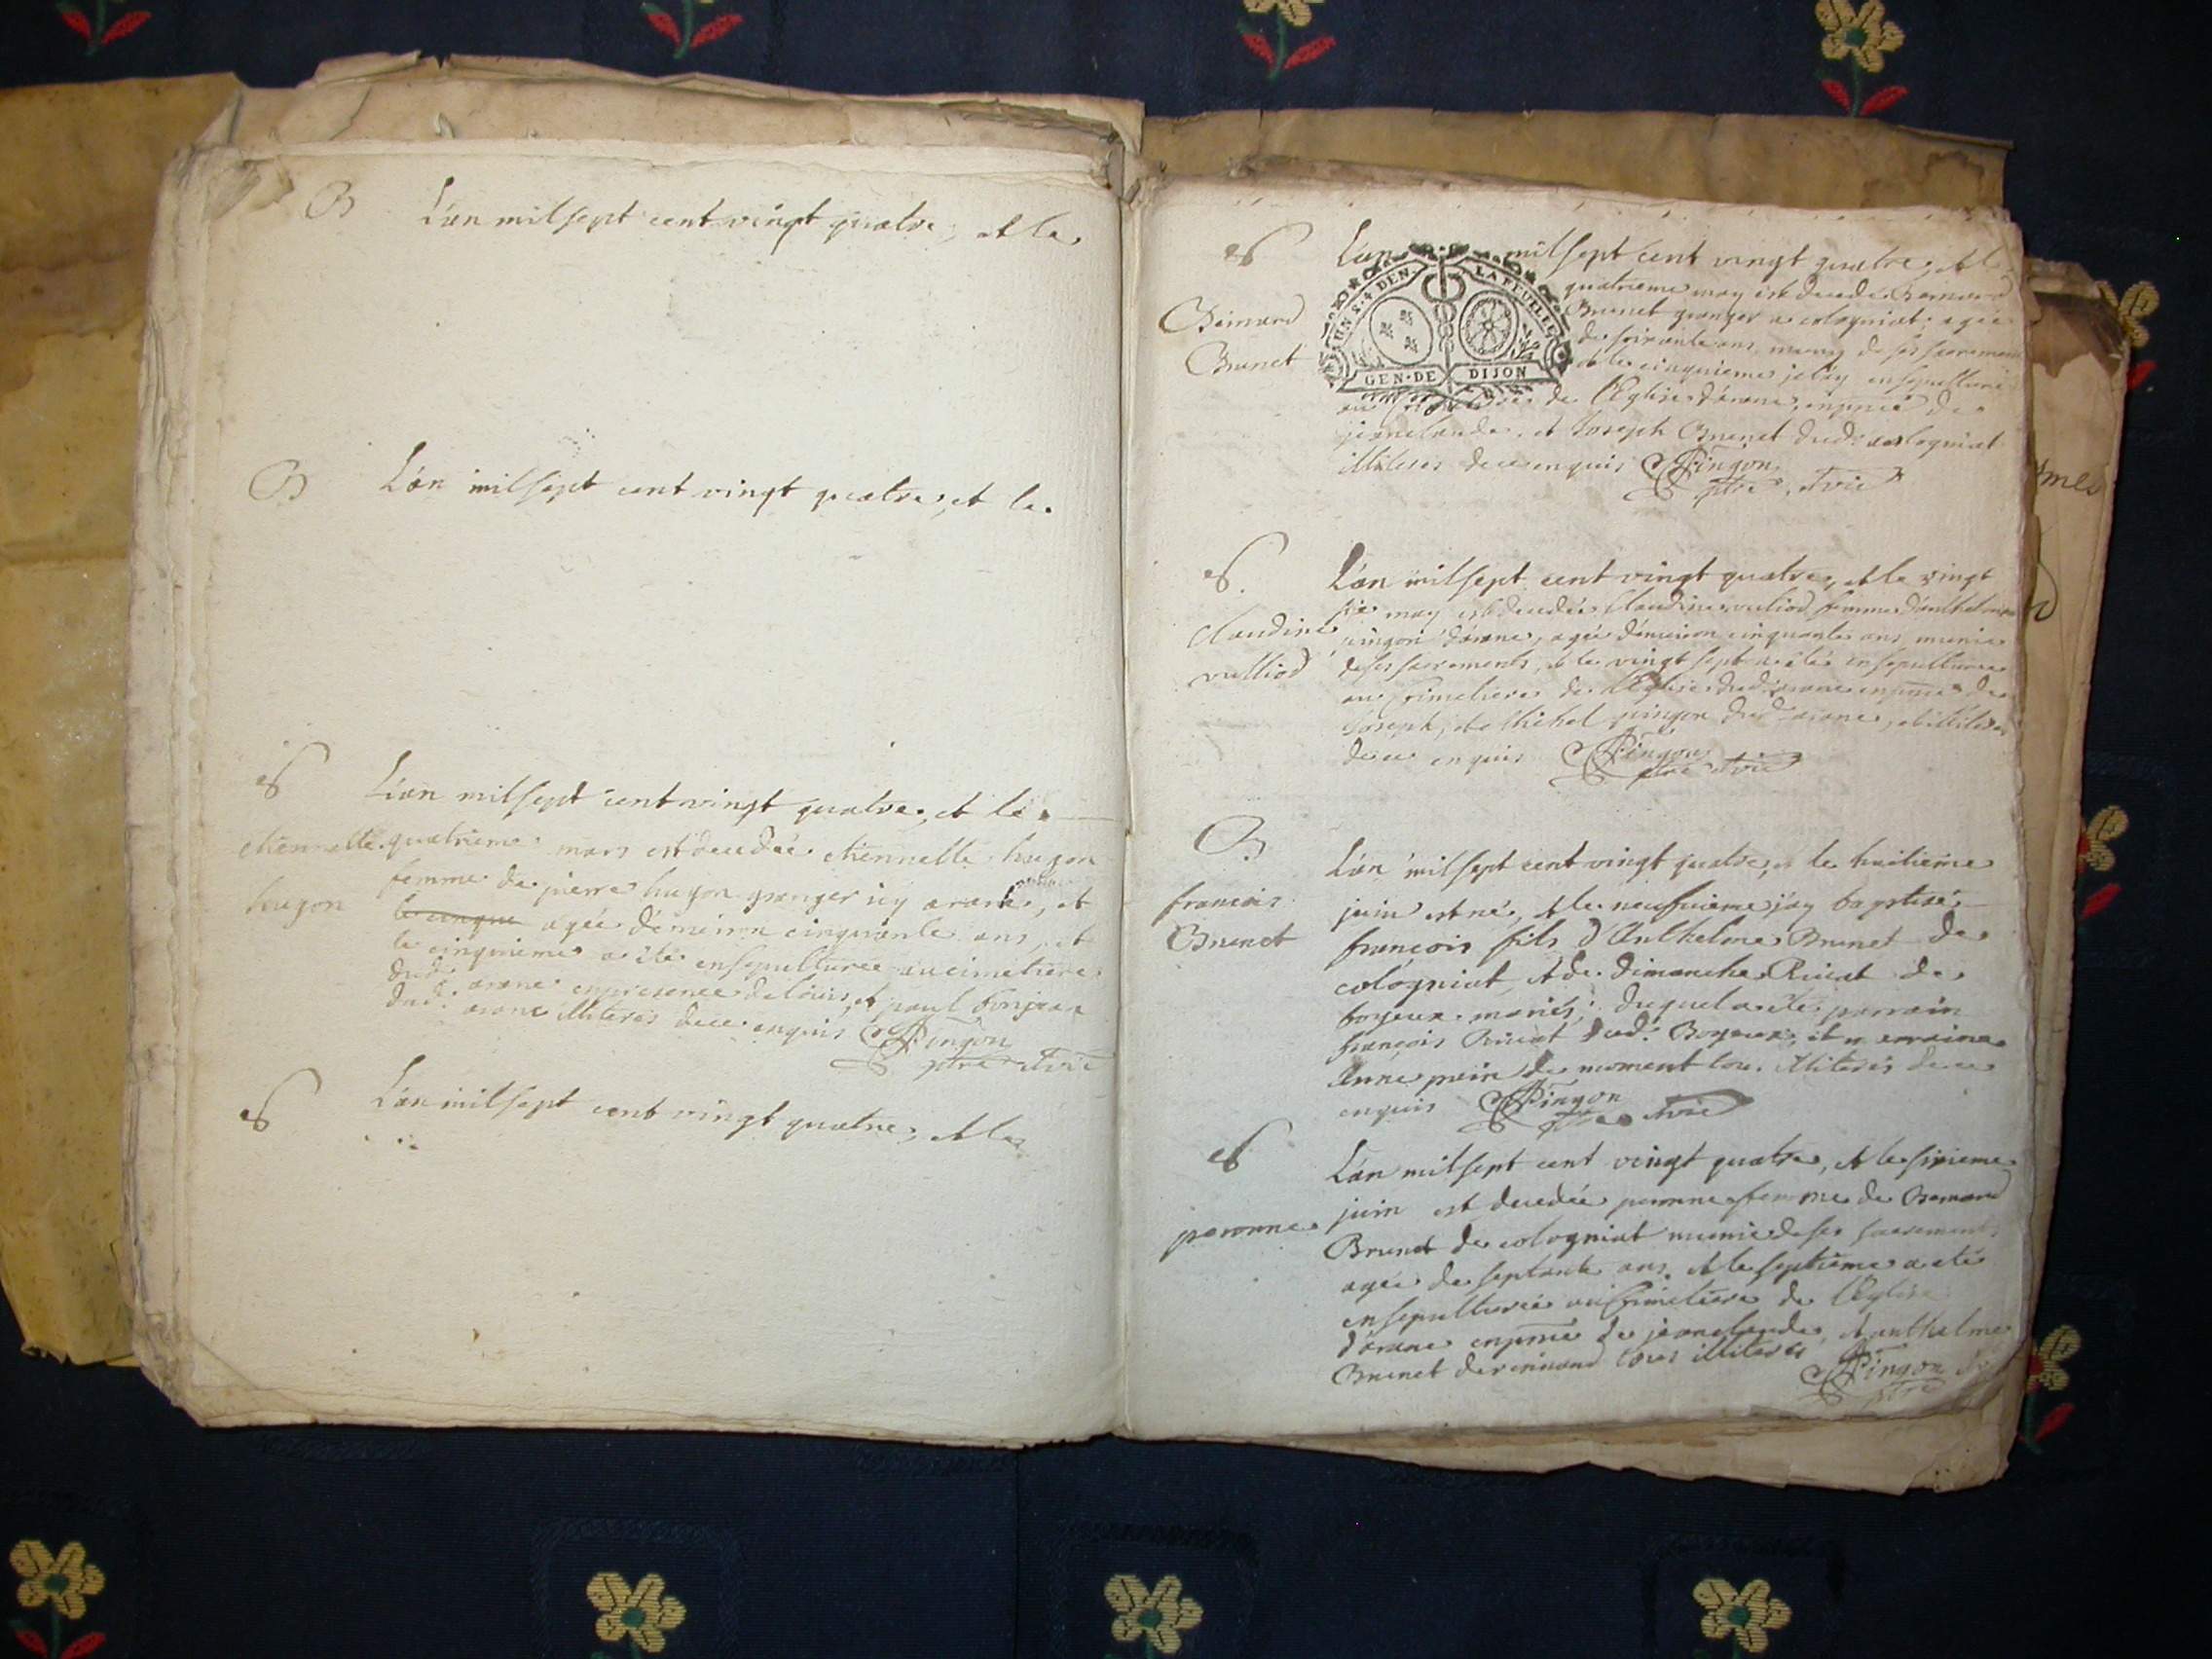 B
L'an mil sept cent vingt quatre, et le
B
L'an mil sept cent vingt quatre, et le
S
L'an mil sept cent vingt quatre, et le
etiennette
hugon
quatrieme mars est decedée etiennette hugon
femme de pierre hugon granger icy arane, et
le cinque agée d'environ cinquante ans, et
le cinquieme a été ensepulturée au cimetiere
dud: arane en presence de louis, et paul bonjean
dud: arane illiterés de ce enquis Pingon
ptre et vic
S
L'an mil sept cent vingt quatre, et le
S
Bernard
Brunet
UN S. 4 DEN. LA FEUILLE
GEN·DE DIJON
L'an mil sept cent vingt quatre, et le
quatrieme may est decedé Bernard
Brunet granger a cologniat, agé
de soixante ans, muny de ses sacremens
et le cinquieme je l'ay ensepulturé
au de l'Eglise d'arane, en pnce de
jeanclaude, et Joseph Brunet dud: cologniat
illiteres de ce enquis Pingon
ptre, et vic
S.
claudine
vulliod
L'an mil sept cent vingt quatre, et le vingt
six may est decedée Claudine vuliod femme d'anthelme
pingon d'arane, agée d'environ cinquante ans, munie
de ses sacrements, et le vingt sept a été ensepulturée
au Cimetiere de l'Eglise dud: arane en pnce de
Joseph, et Michel pingon dud: arane, illiterés
de ce enquis Pingon
ptre et vic
B
francois
Brunet
L'an mil sept cent vingt quatre, et le huitieme
juin est né, et le neufvieme j'ay baptisé
françois fils d'Anthelme Brunet de
cologniat, et de dimanche Ruiat de
boyeux mariés; duquel a été parrain
françois Ruiat dud: Boyeux, et marraine
anne pain de momentlou. illiterés de ce
enquis Pingon
ptre et vic
S
peronne
L'an mil sept cent vingt quatre, et le sixieme
juin est decedée peronne femme de Bernard
Brunet de cologniat munie de ses sacrements
agée de septante ans. et le septieme a été
ensepulturée au Cimetiere de l'Eglise
d'arane en pnce de jeanclaude, et anthelme
Brunet illiterés Pingon
ptre